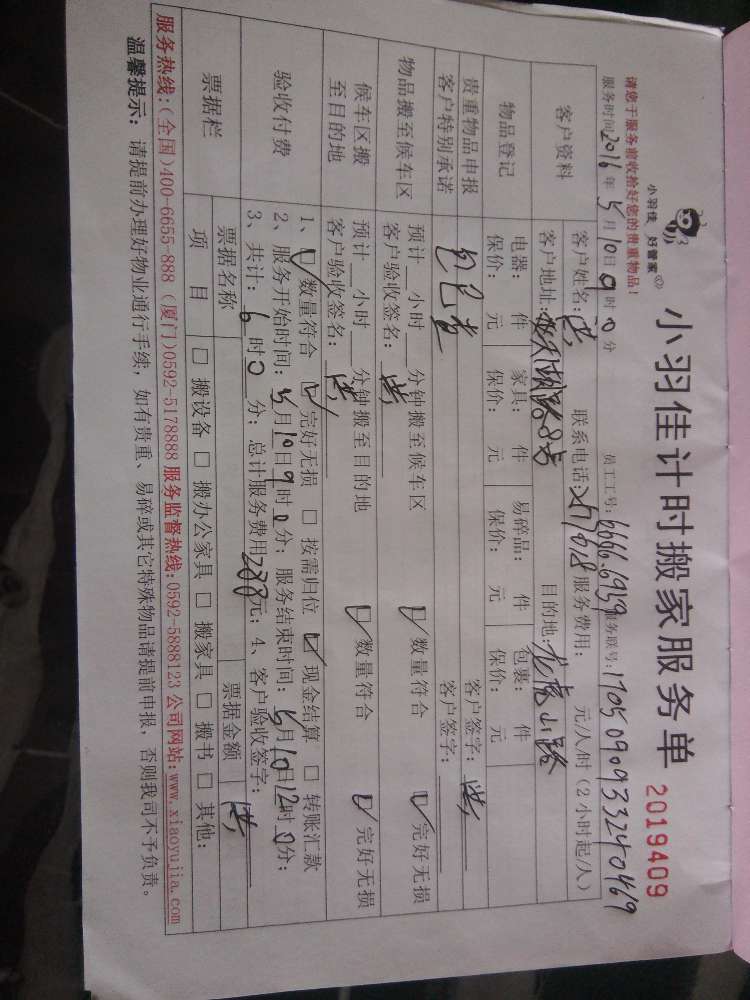 小羽佳计时搬家服务单 2019409
小羽佳 好管家
请您于服务前收拾好您的贵重物品!
服务时间2016年5月10日9时0分 员工工号: 6666.6959 服务联号:
客户资料 客户姓名:洪 联系电话: 服务费用: 元/人/时(2小时起/人)
客户地址: 目的地:龙虎山路
物品登记 电器: 件 家具: 件 易碎品: 件 包裹: 件
保价: 元 保价: 元 保价: 元 保价: 元
贵重物品申报 客户签字:洪
客户特别承诺 包已查 客户签字:
物品搬至候车区 预计 小时 分钟搬至候车区
客户验收签名:洪 ☑数量符合 ☑完好无损
候车区搬至目的地 预计 小时 分钟搬至目的地
客户验收签名:洪 ☑数量符合 ☑完好无损
验收付费 1、☑数量符合 ☑完好无损 □按需归位 ☑现金结算 □转账汇款
2、服务开始时间:5月10日9时0分;服务结束时间:5月10日12时0分;
3、共计:6时0分;总计服务费用 元;4、客户验收签字:洪
票据栏 票据名称 票据金额
项目 □搬设备 □搬办公家具 □搬家具 □搬书 □其他:
服务热线:(全国)400-6655-888 (厦门)0592-5178888 服务监督热线:0592-5888123 公司网站:www.xiaoyujia.com
温馨提示: 请提前办理好物业通行手续,如有贵重、易碎或其它特殊物品请提前申报,否则我司不予负责。